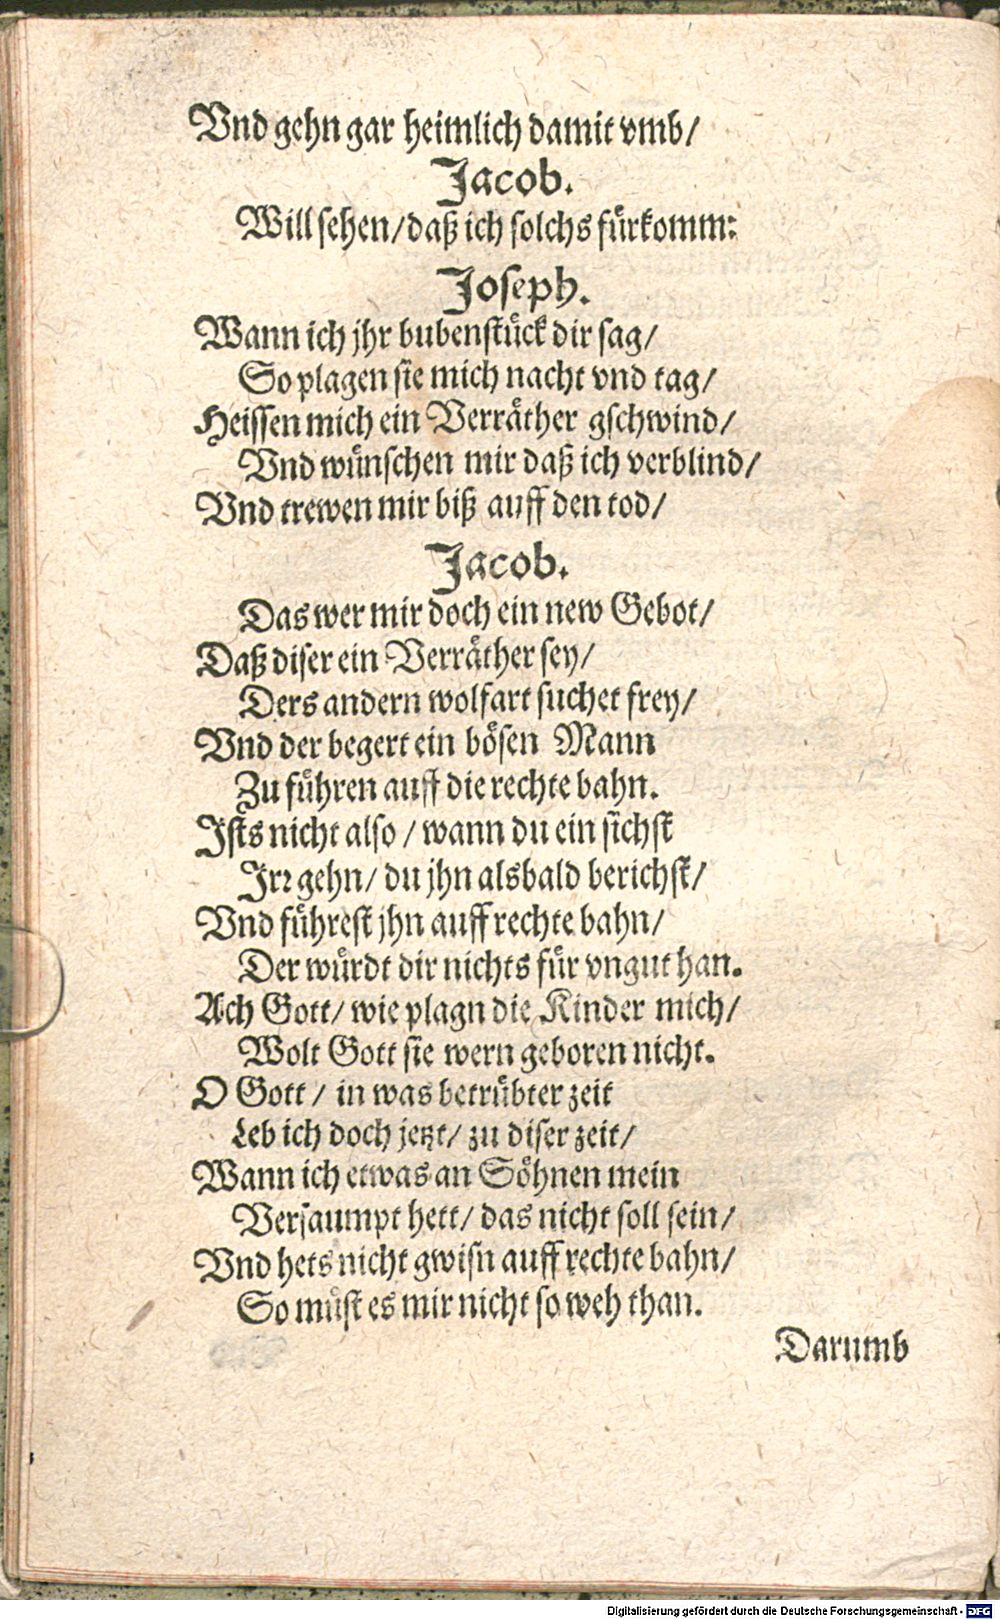 Vnd gehn gar heimlich damit vmb/
Jacob.
Will sehen/daß ich solchs fürkomm:
Joseph.
Wann ich jhr bubenstück dir sag/
So plagen sie mich nacht vnd tag/
Heissen mich ein Verräther gschwind/
Vnd wünschen mir daß ich verblind/
Vnd trewen mir biß auff den tod/
Jacob.
Das wer mir doch ein new Gebot/
Daß diser ein Verräther sey/
Ders andern wolfart suchet frey/
Vnd der begert ein bösen Mann
Zu führen auff die rechte bahn.
Ists nicht also / wann du ein sichst
Irr gehn/ du jhn alsbald berichst/
Vnd führest jhn auff rechte bahn/
Der würdt dir nichts für vngut han.
Ach Gott/ wie plagn die Kinder mich/
Wolt Gott sie wern geboren nicht.
O Gott / in was betrübter zeit
Leb ich doch jetzt/ zu diser zeit/
Wann ich etwas an Söhnen mein
Versaumpt hett/ das nicht soll sein/
Vnd hets nicht gwisn auff rechte bahn/
So müst es mir nicht so weh than.
Darumb
Digitalisierung gefördert durch die Deutsche Forschungsgemeinschaft - DFG